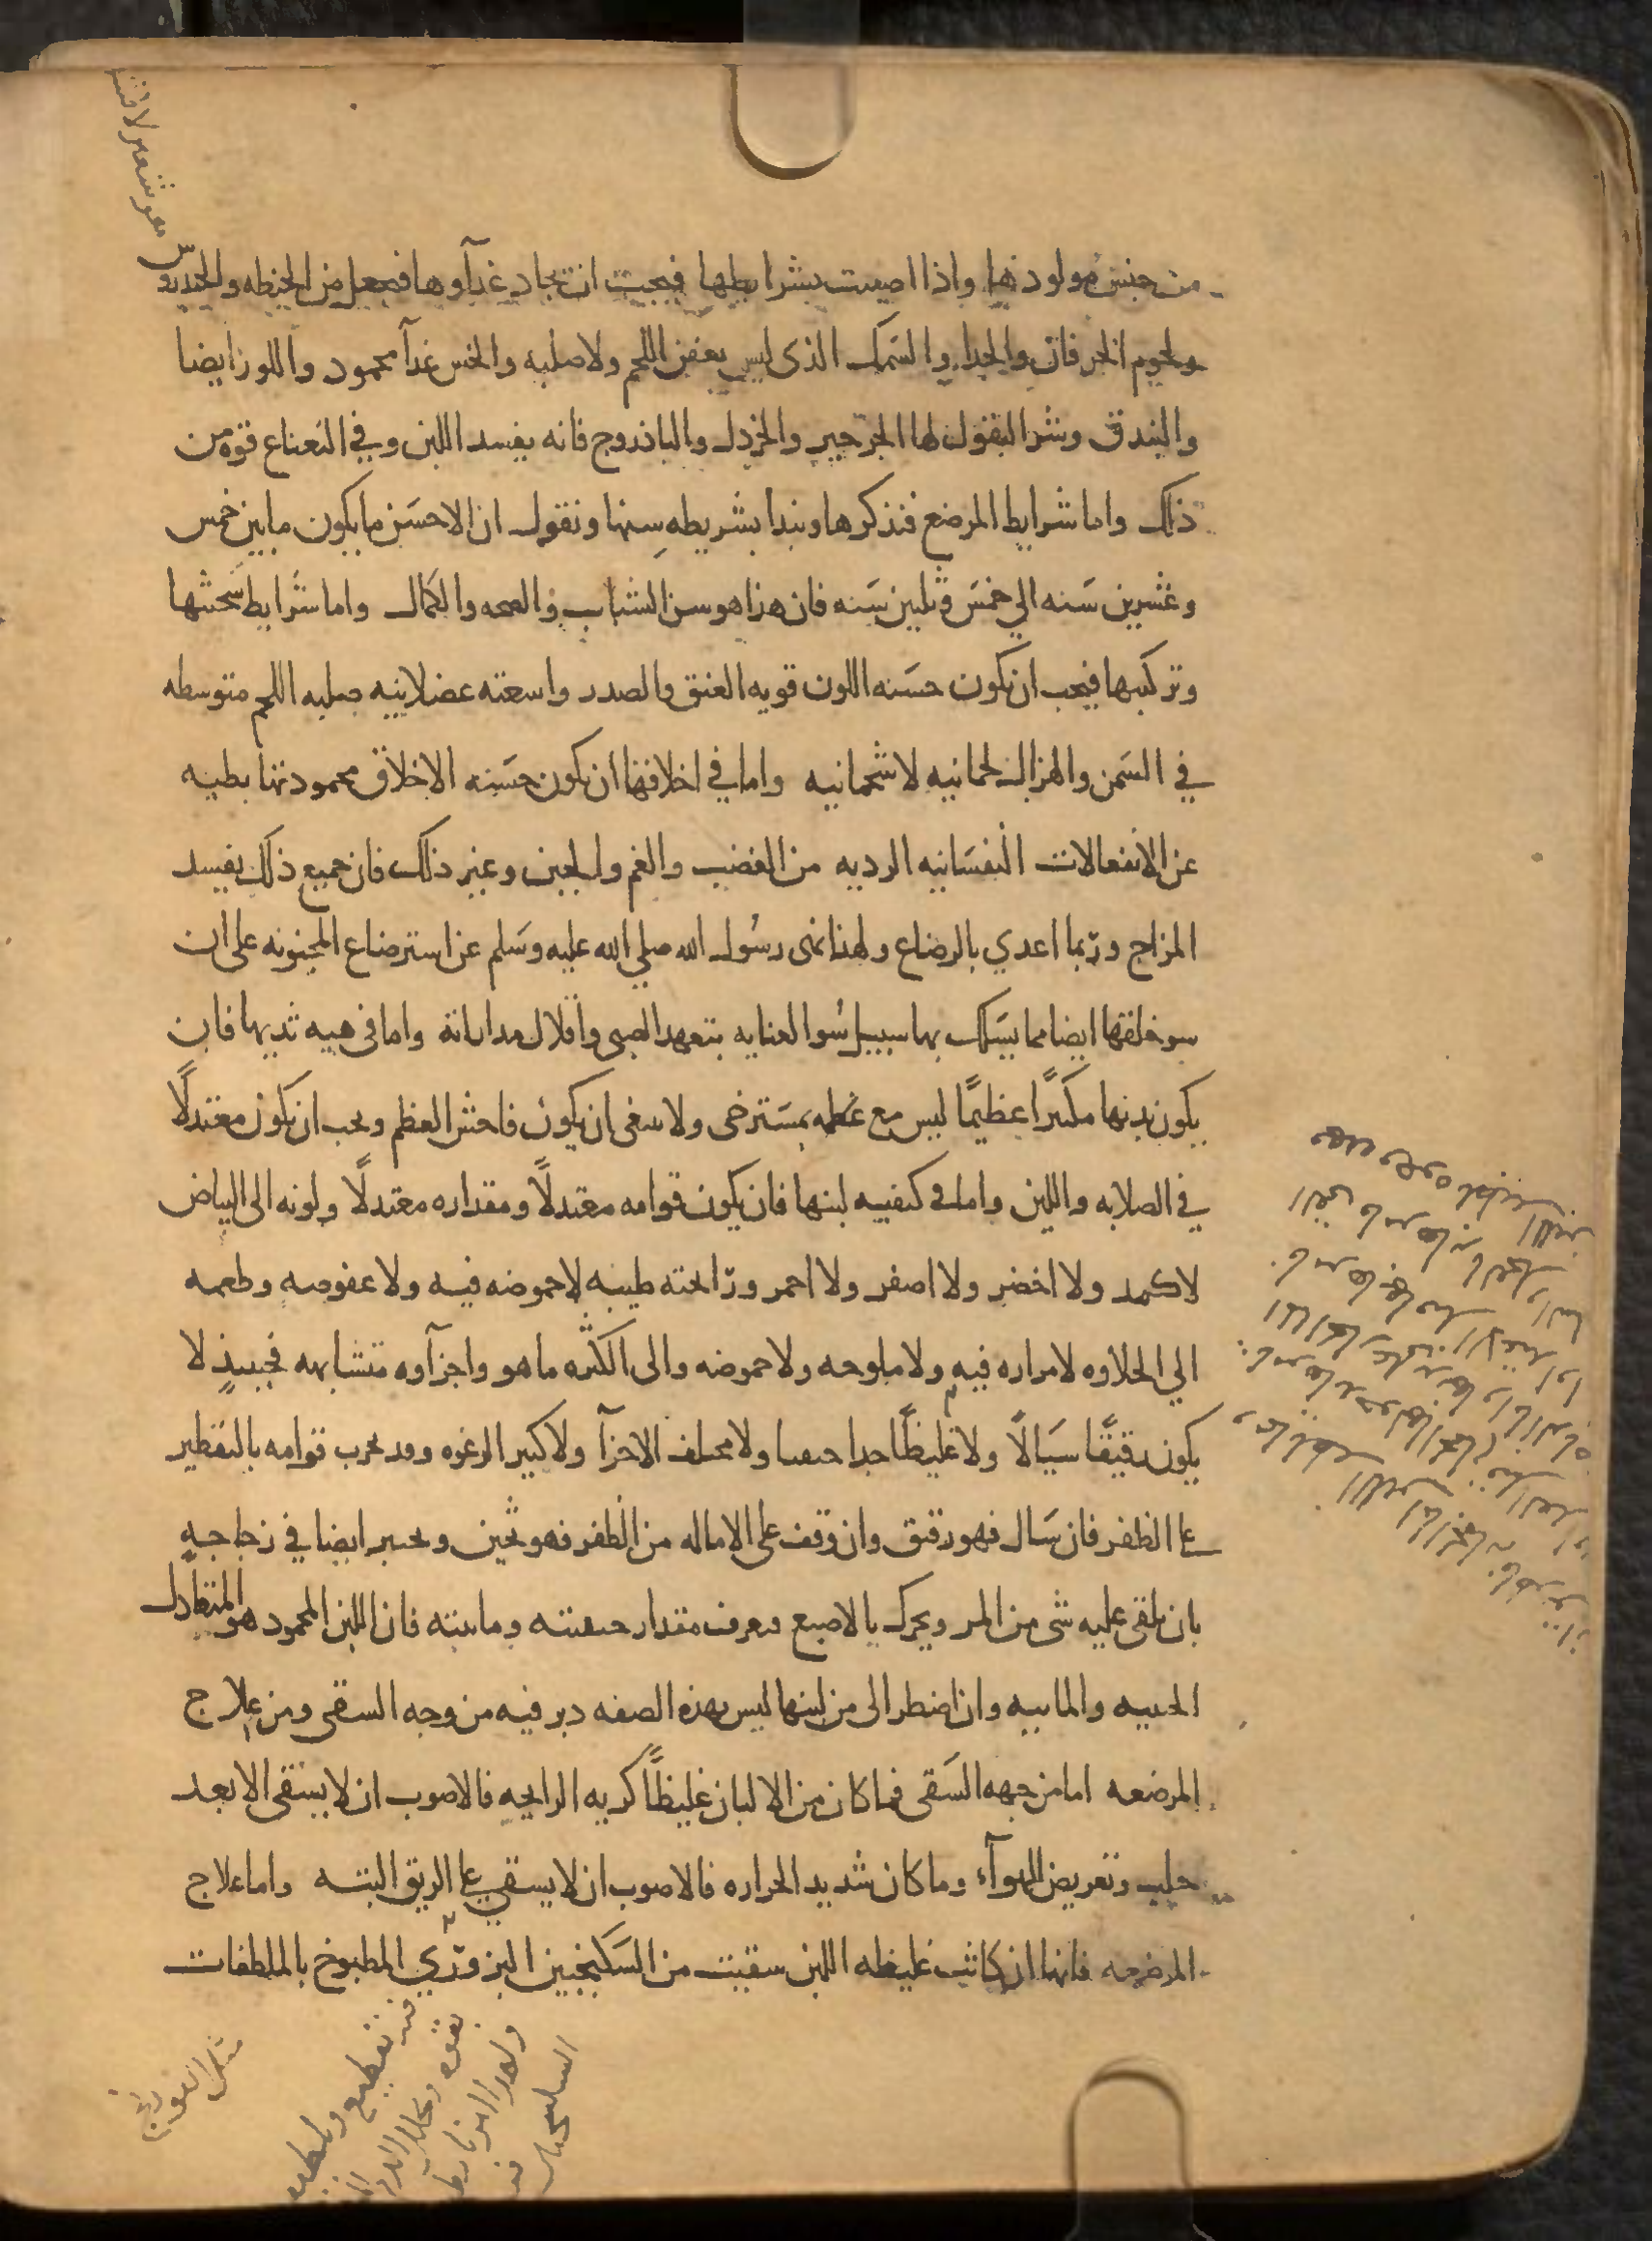 من جنس مولودها واذا اصيبت بشرايطها فيجب ان تجاد غداوها فيجعل من الحنطه والخندروس
ولحوم الخرفان والجدا والسمك الذى ليس بعفن اللحم ولا صلبه والخس غدآ محمود واللوز ايضا
والبندق وشر البقول لها الجرجير والخردل والباذروج فانه يفسد اللبن وفي النعناع قوه من
ذلك واما شرايط المرضع فنذكرها ونبدا بشريطه سنها ونقول ان الاحسن ما يكون ما بين خمس
وعشرين سنه الي خمس وثلثين سنه فان هذا هو سن الشباب والصحه والكمال واما شرايط سحنتها
وتركيبها فيجب ان تكون حسنه اللون قويه العنق والصدر واسعته عضلانيه صلبه اللحم متوسطه
في السمن والهزال لحمانيه لا شحمانيه واما في اخلاقها ان تكون حسنه الاخلاق محمودتها بطيه
عن الانفعالات النفسانيه الرديه من الغضب والغم والجبن وغير ذلك فان جميع ذلك يفسد
المزاج وربما اعدي بالرضاع ولهذا نهى رسول الله صلي الله عليه وسلم عن استرضاع المجنونه على ان
سو خلقها ايضا مما يسلك بها سبيل سوا العنايه بتعهد الصبى واقلال مداراته واما فى هييه ثديها فان
يكون ثديها مكتنزًا عظيمًا ليس مع عظمه بمسترخى ولا ينبغى ان يكون فاحش العظم ويجب ان يكون معتدلًا
في الصلابه واللين واما فى كيفيه لبنها فان يكون قوامه معتدلًا ومقداره معتدلًا ولونه الى البياض
لا كمد ولا اخضر ولا اصفر ولا احمر ورائحته طيبه لا حموضه فيه ولا عفوصه وطعمه
الي الحلاوه لا مراره فيه ولا ملوحه ولا حموضه والى الكثره ما هو واجزآوه متشابهه فحينيذ لا
يكون رقيقًا سيالًا ولا غليظًا جدا جبنيا ولا مختلف الاجزآ ولا كثير الرغوه وقد يجرب قوامه بالتقطير
على الظفر فان سال فهو رقيق وان وقف على الاماله من الظفر فهو ثخين ويختبر ايضا في زجاجه
بان يلقى عليه شى من المر ويحرك بالاصبع فيعرف مقدار جبنيته ومائيته فان اللبن المحمود هو المتعادل
الجبنيه والماييه وان اضطر الى من لبنها ليس بهذه الصفه دبر فيه من وجه السقى ومن علاج
المرضعه اما من جهه السقى فما كان من الالبان غليظًا كريه الرايحه فالاصوب ان لا يسقى الا بعد
حلب وتعريض للهوآء وما كان شديد الحراره فالاصوب ان لا يسقي على الريق البته واما علاج
المرضعه فانها ان كانت غليظه اللبن سقيت من السكنجبين البزوري المطبوخ بالملطفات